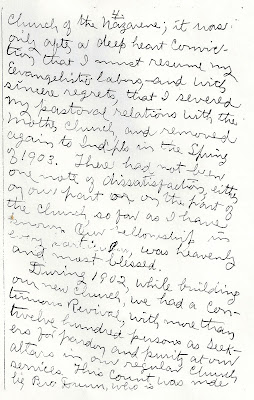 4
Church of the Nazarene; it was
only after a deep heart Convic-
tion that I must resume my
Evangelistic labors and with
sincere regrets, that I severed
my pastoral relations with the
Mother Church, and removed
again to Indpls in the Spring
of 1903. There had not been
one note of dissatisfaction, either
on our part or on the part of
the Church so far as I have
known. Our fellowship in
every particular, was heavenly
and most blessed.
During 1902, while building
our new Church, we had a Con-
tinuous Revival, with more than
twelve hundred persons as Seek-
ers for pardon and purity at our
altars in our regular Church
services. This Count was made
by Bro who is